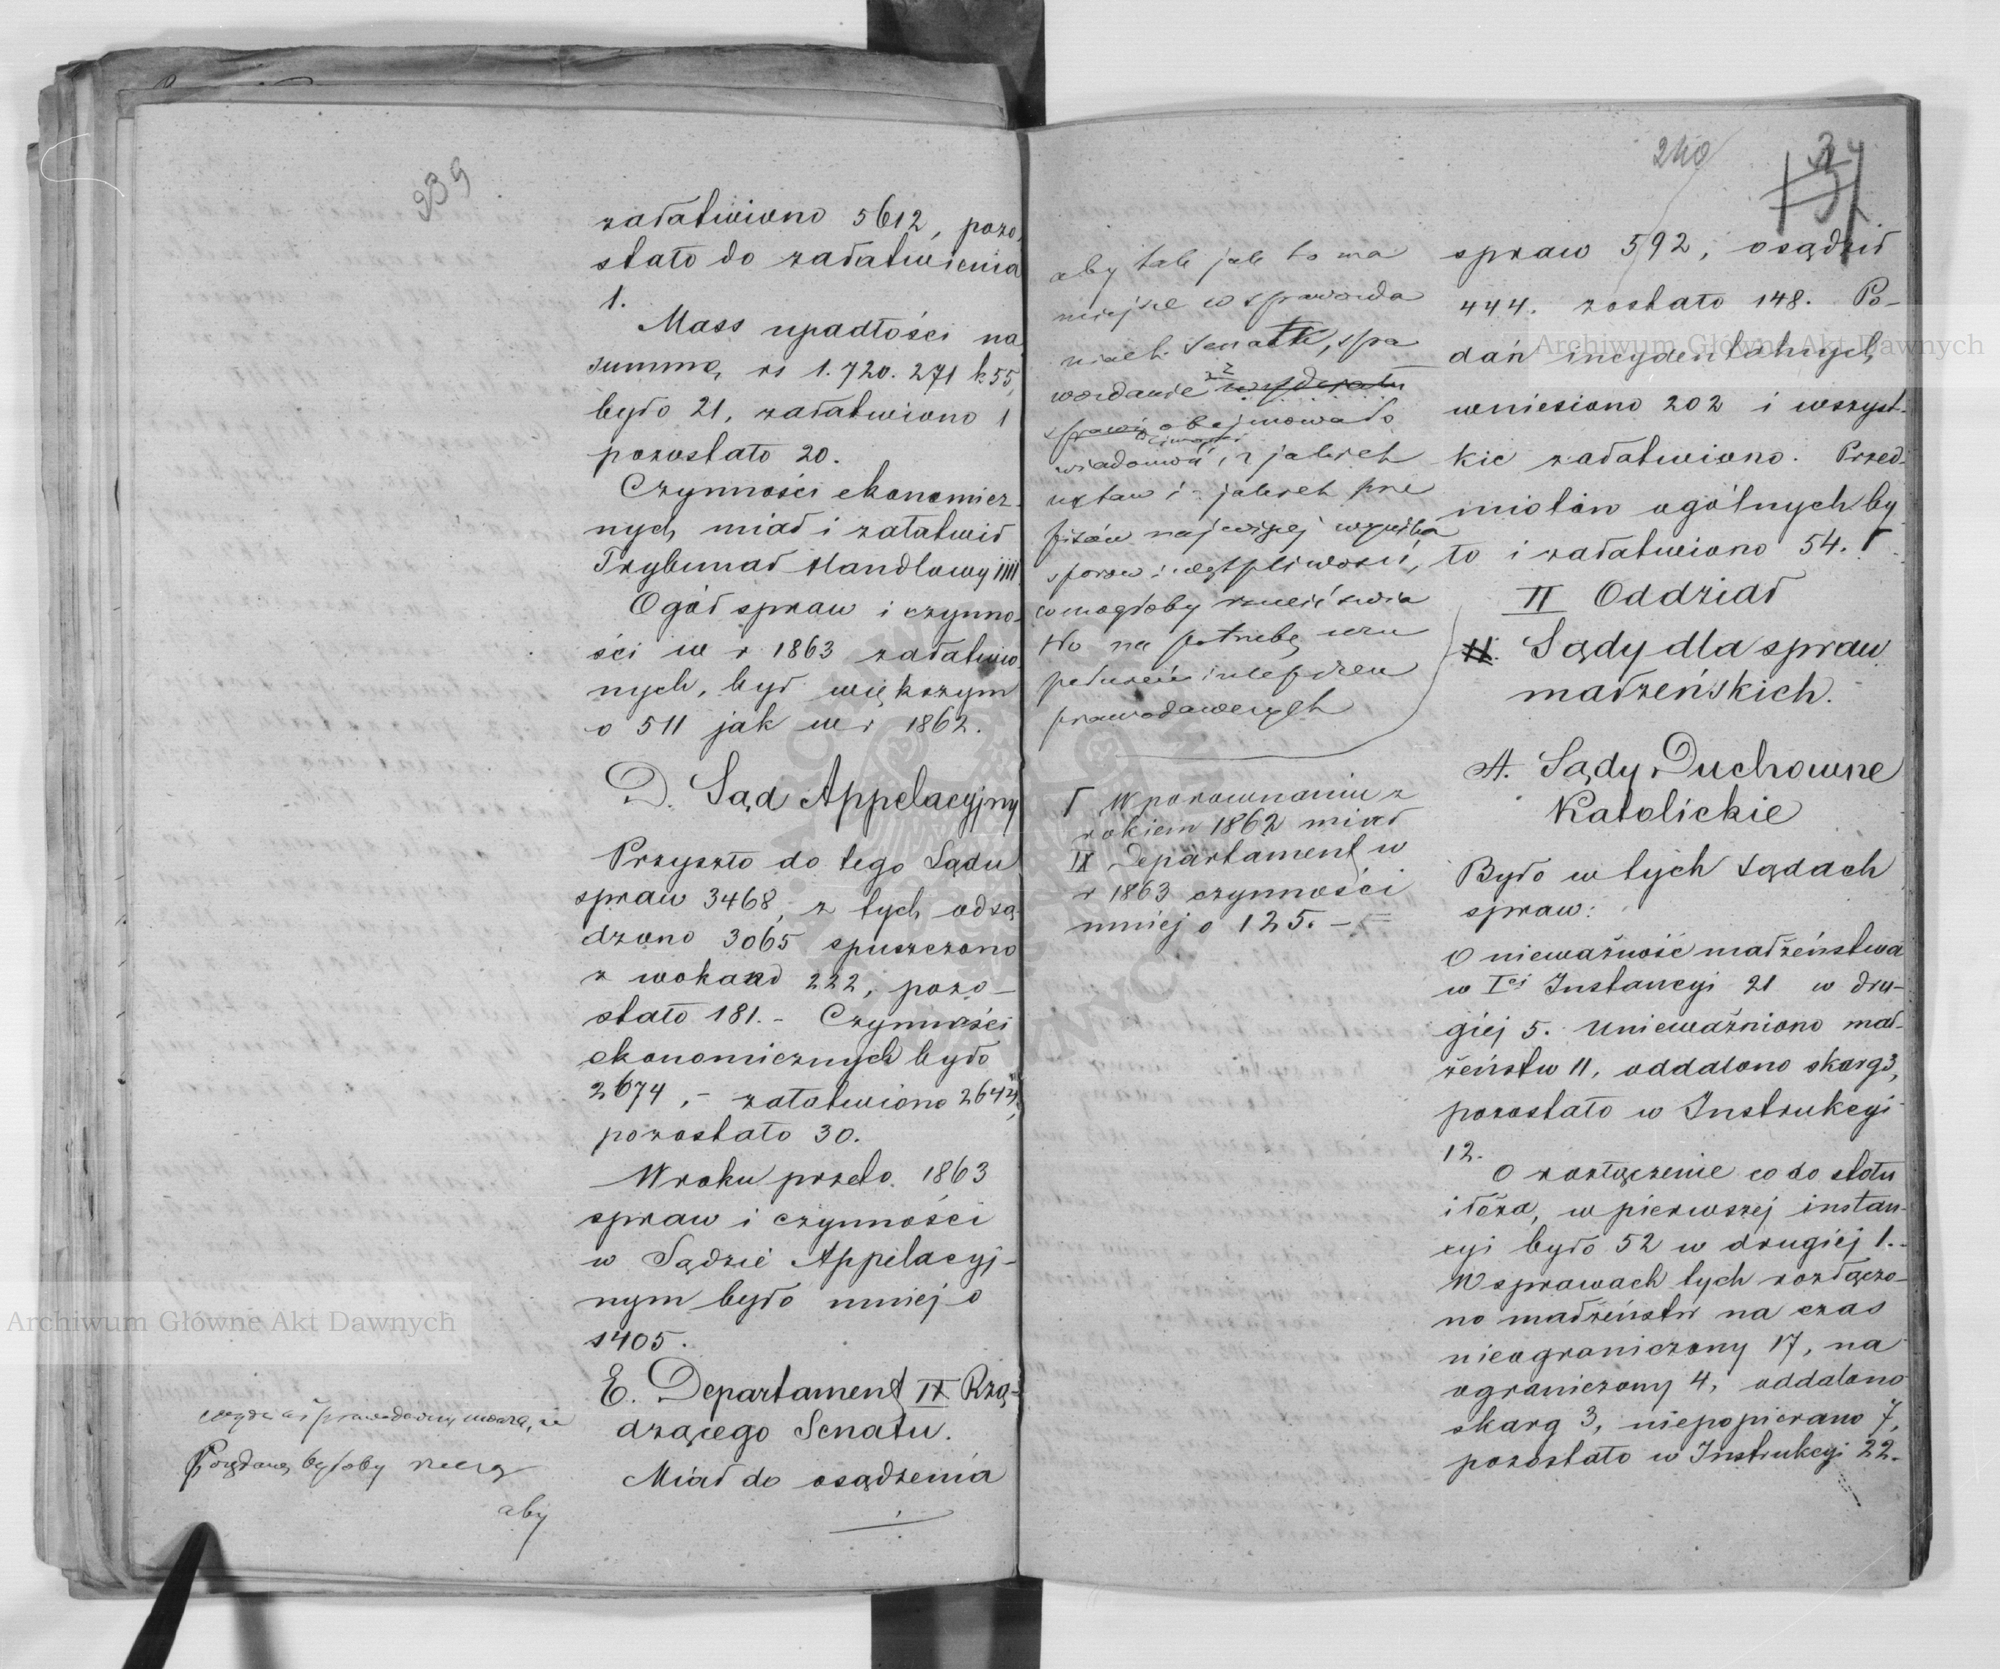 239
załatwiono 5612, pozo-
stało do załatwienia
1.
Mass upadłości na
summę rs 1.720.271 k 55
było 21, załatwiono 1
pozostało 20.
Czynności ekonomicz-
nych miał i załatwił
Trybunał Handlowy 1111
Ogół spraw i czynno-
ści w r 1863 załatwio
nych, był większym
o 511 jak w r 1862.
D. Sąd Appelacyjny
Przyszło do tego Sądu
spraw 3468, z tych odsą-
dzono 3065 spuszczono
z wokand 222, pozo-
stało 181. - Czynności
ekonomicznych było
2674, - załatwiono 2644,
pozostało 30.
W roku przeto 1863
spraw i czynności
w Sądzie Appelacyj-
nym było mniej o
1405.
E. Departament IX Rzą-
dzącego Senatu.
Miał do osądzenia
Pożądaną byłoby rzeczą
aby
240
aby tak jak to ma
miejsce w sprawozda
niach Senatu, spra
wozdanie z
sprawą obejmowało
wiadomość, z jakich
ustaw i z jakich prze
pisów najwięcej wynikło
sporów i wątpliwości,
co mogłoby rzucić świa
tło na potrzebę uzu
pełnień i ulepszeń
prawodawczych
Γ W porównaniu z
rokiem 1862 miał
IX Departament w
r 1863 czynności
mniej o 125. -
spraw 592, osądził
444. zostało 148. Po-
dań incydentalnych
wniesiono 202 i wszyst-
kie załatwiono. Przed-
miotów ogólnych by
ło i załatwiono 54. Γ
II Oddział
Sądy dla spraw
małżeńskich.
A. Sądy Duchowne
Katolickie
Było w tych sądach
spraw:
O nieważność małżeństwa
w Iej Instancyi 21 w dru-
giej 5. Unieważniono mał-
żeństw 11, oddalono skarg 3,
pozostało w Instrukcyi
12.
O rozłączenie co do stołu
i łoża, w pierwszej instan-
cyi było 52 w drugiej 1.-
W sprawach tych rozłączo-
no małżeństw na czas
nieograniczony 17, na
ograniczony 4, oddalono
skarg 3, niepopierano 7,
pozostało w Instrukcyi 22.
Archiwum Główne Akt Dawnych
Archiwum Główne Akt Dawnych